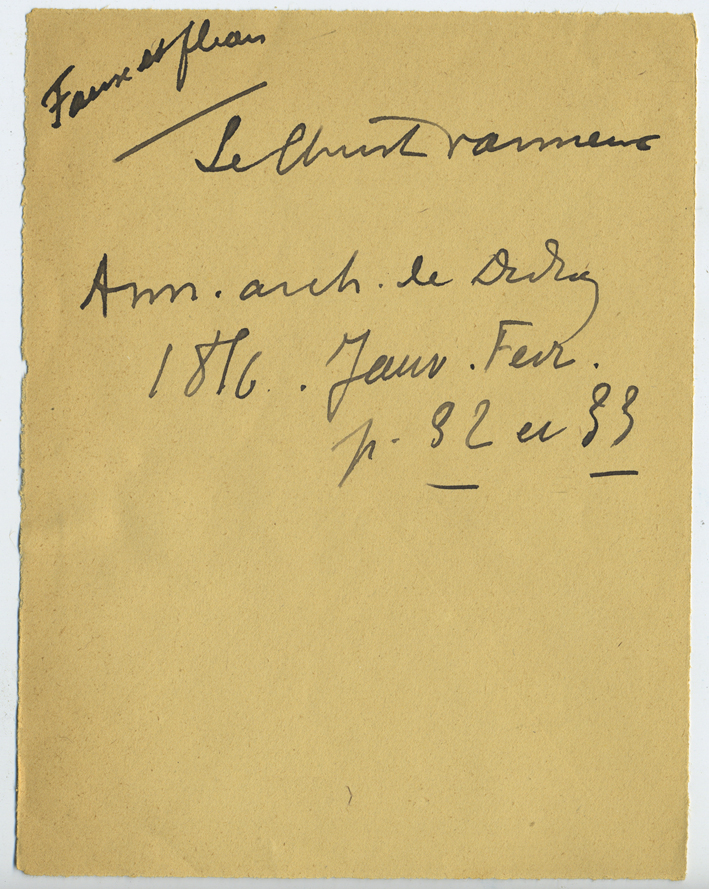 Faux et fléau
Le Christ vanneur
Ann. arch. de Didron
Janv. Fevr.
p. 32 et 33